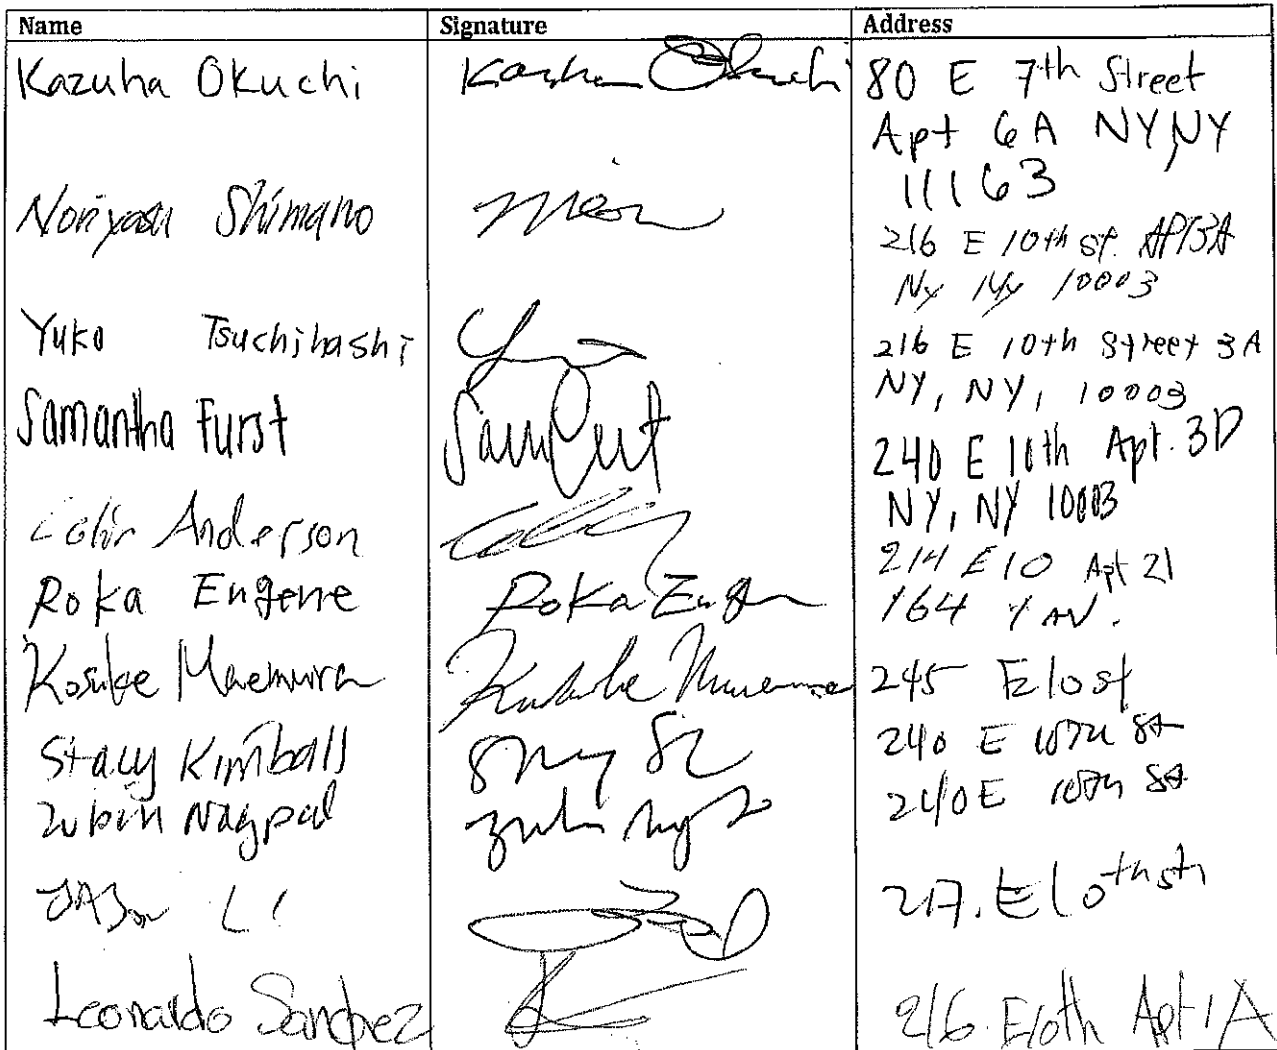 Name Signature Address
Kazuha Okuchi Kazuha Okuchi 80 E 7th Street
Apt 6A NY, NY
11163
Noriyasu Shimano
216 E 10th St. APT3A
NY NY 10003
Yuko Tsuchihashi 216 E 10th Street 3A
NY, NY, 10003
Samantha Furst Sam Furst 240 E 10th Apt. 3D
NY, NY 10003
Colin Anderson 214 E10 Apt 21
Roka Eugene Roka Eugene 164 AV.
Kosuke Maemura Kosuke Maemura 245 E10st
Stacy Kimball 240 E 10TH St
Zubin Nagpal 240 E 10th St
JASon Li 217. E10th st
Leonardo Sanchez 216. E10th Apt 1A